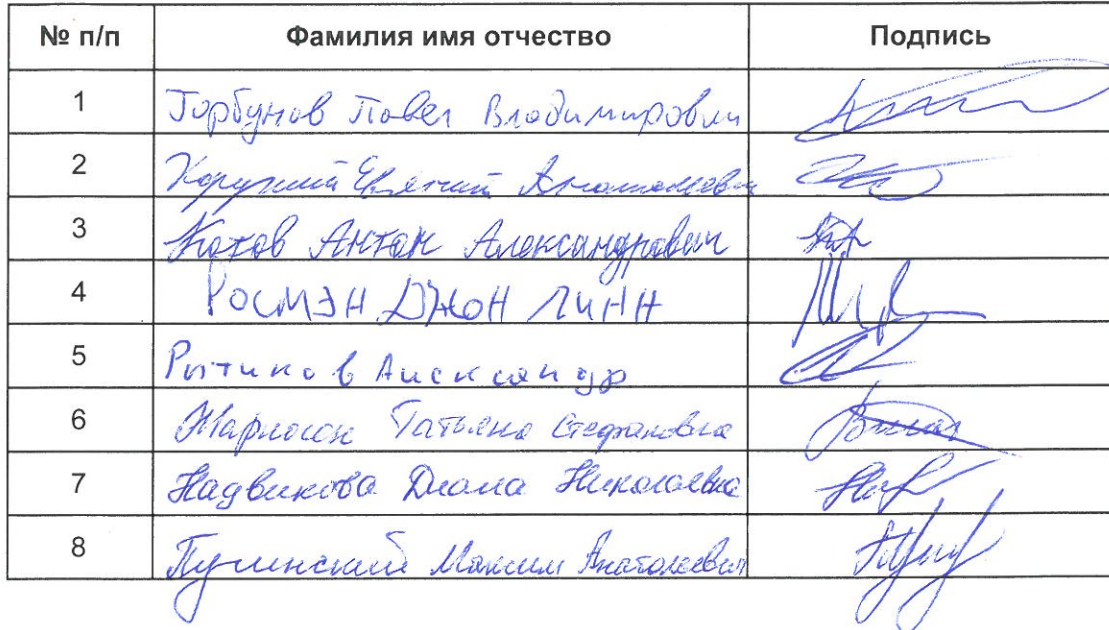 № п/п Фамилия имя отчество Подпись
1 Горбунов Павел Владимирович
2 Евгений Анатольевич
3 Котов Антон Александрович
4 РОСМЭН ДЖОН ЛИНН
5 Рытиков Александр
6 Татьяна Стефановна
7 Надвикова Диана Николаевна
8 Пучинский Максим Анатольевич